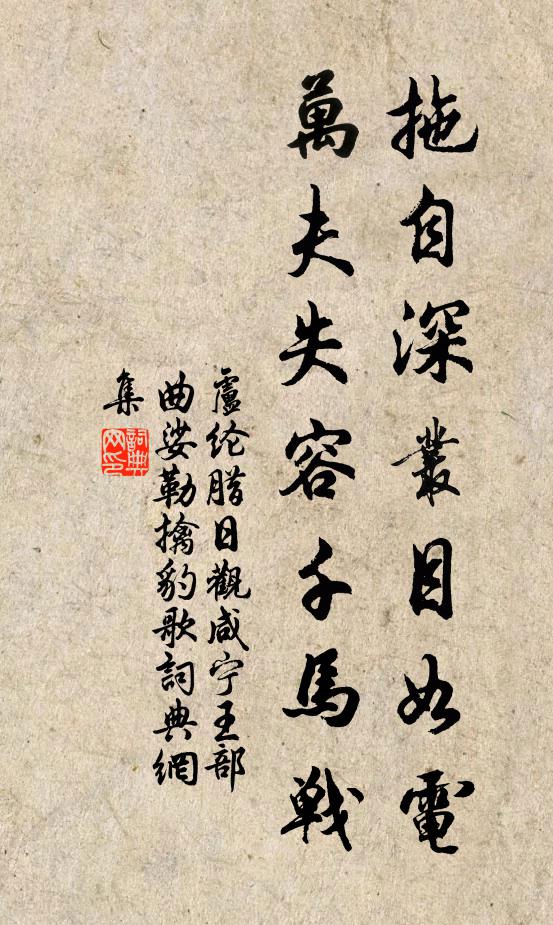 拖自深叢目如電
萬夫失容千馬戰
盧纶腊日觀咸宁王部
曲娑勒擒豹歌詞典網
集
詞典網印